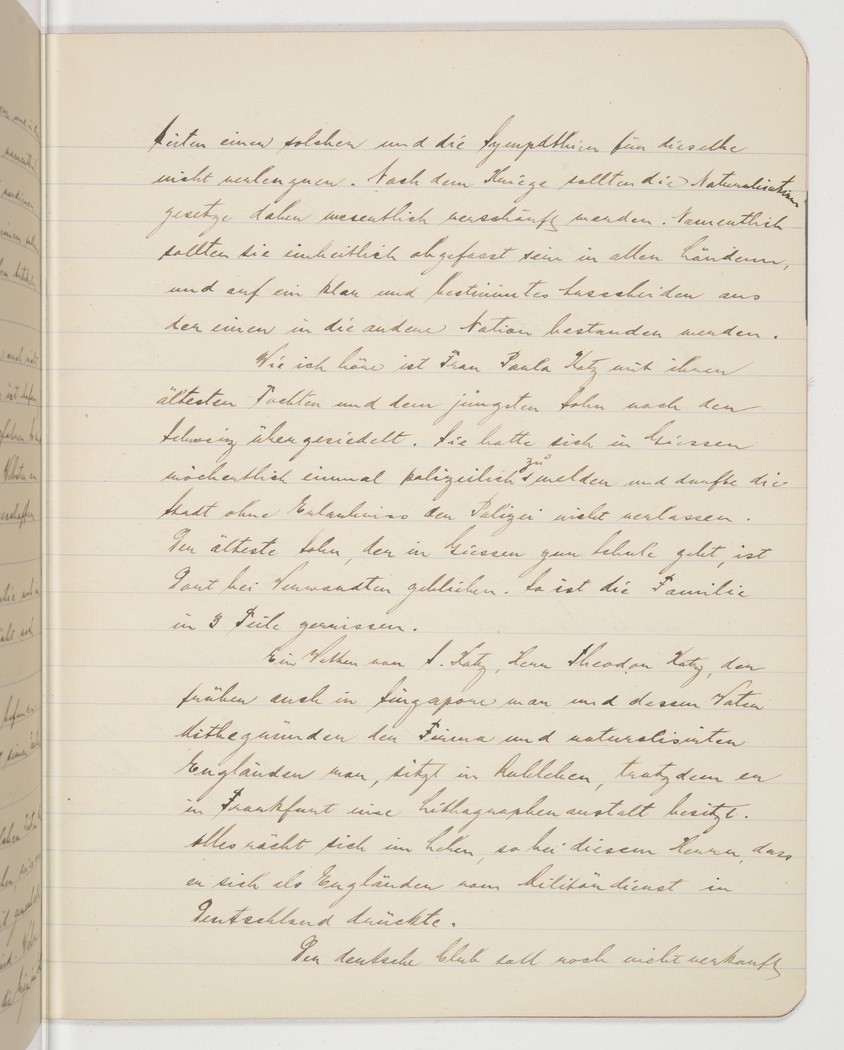 Seiten einer solchen und die Sympathien für dieselbe
nicht verleugnen. Nach dem Kriege sollten die Naturalisations
gesetze daher wesentlich verschärft werden. Namentlich
sollten sie einheitlich abgefasst sein in allen Ländern,
und auf ein klar und bestimmtes Ausscheiden aus
der einen in die andere Nation bestanden werden.
Wie ich höre ist Frau Paula Katz mit ihrer
ältesten Tochter und dem jüngsten Sohn nach der
Schweiz übergesiedelt. Sie hatte sich in Giessen
wöchentlich einmal polizeilich zu melden und durfte die
Stadt ohne Erlaubniss der Polizei nicht verlassen.
Der älteste Sohn, der in Giessen zur Schule geht, ist
Dort bei Verwandten geblieben. So ist die Familie
in 3 Teile gerrissen.
Ein Vetter von S. Katz, Herr Theodor Katz, der
früher auch in Singapore war und dessen Vater
Mitbegründer der Firma und naturalisirter
Engländer war, sitzt in Ruhleben, trotzdem er
in Frankfurt eine Lithographenanstalt besitzt.
Alles rächt sich im Leben, so bei diesem Herrn, dass
er sich als Engländer vom Militärdienst in
Deutschland drückte.
Der deutsche Club soll noch nicht verkauft